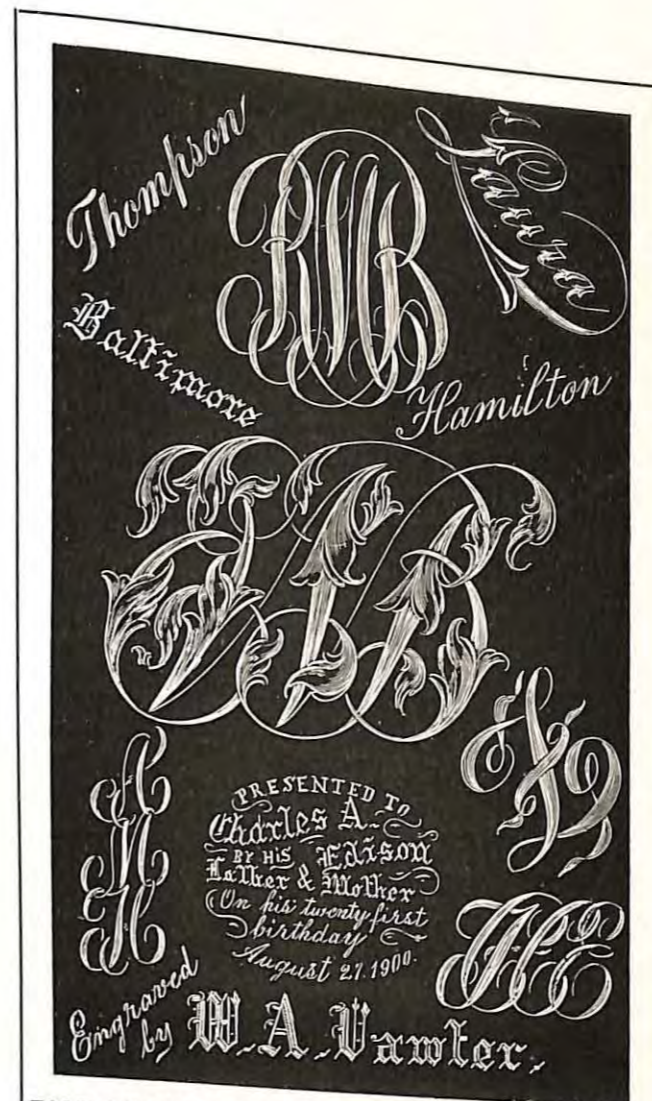 Thompson
Laura
Baltimore
Hamilton
A
M
H
PRESENTED TO
Charles A.
BY HIS Edison
Father & Mother
On his twenty first
birthday
August 27. 1900.
Engraved
by W. A. Vawter.